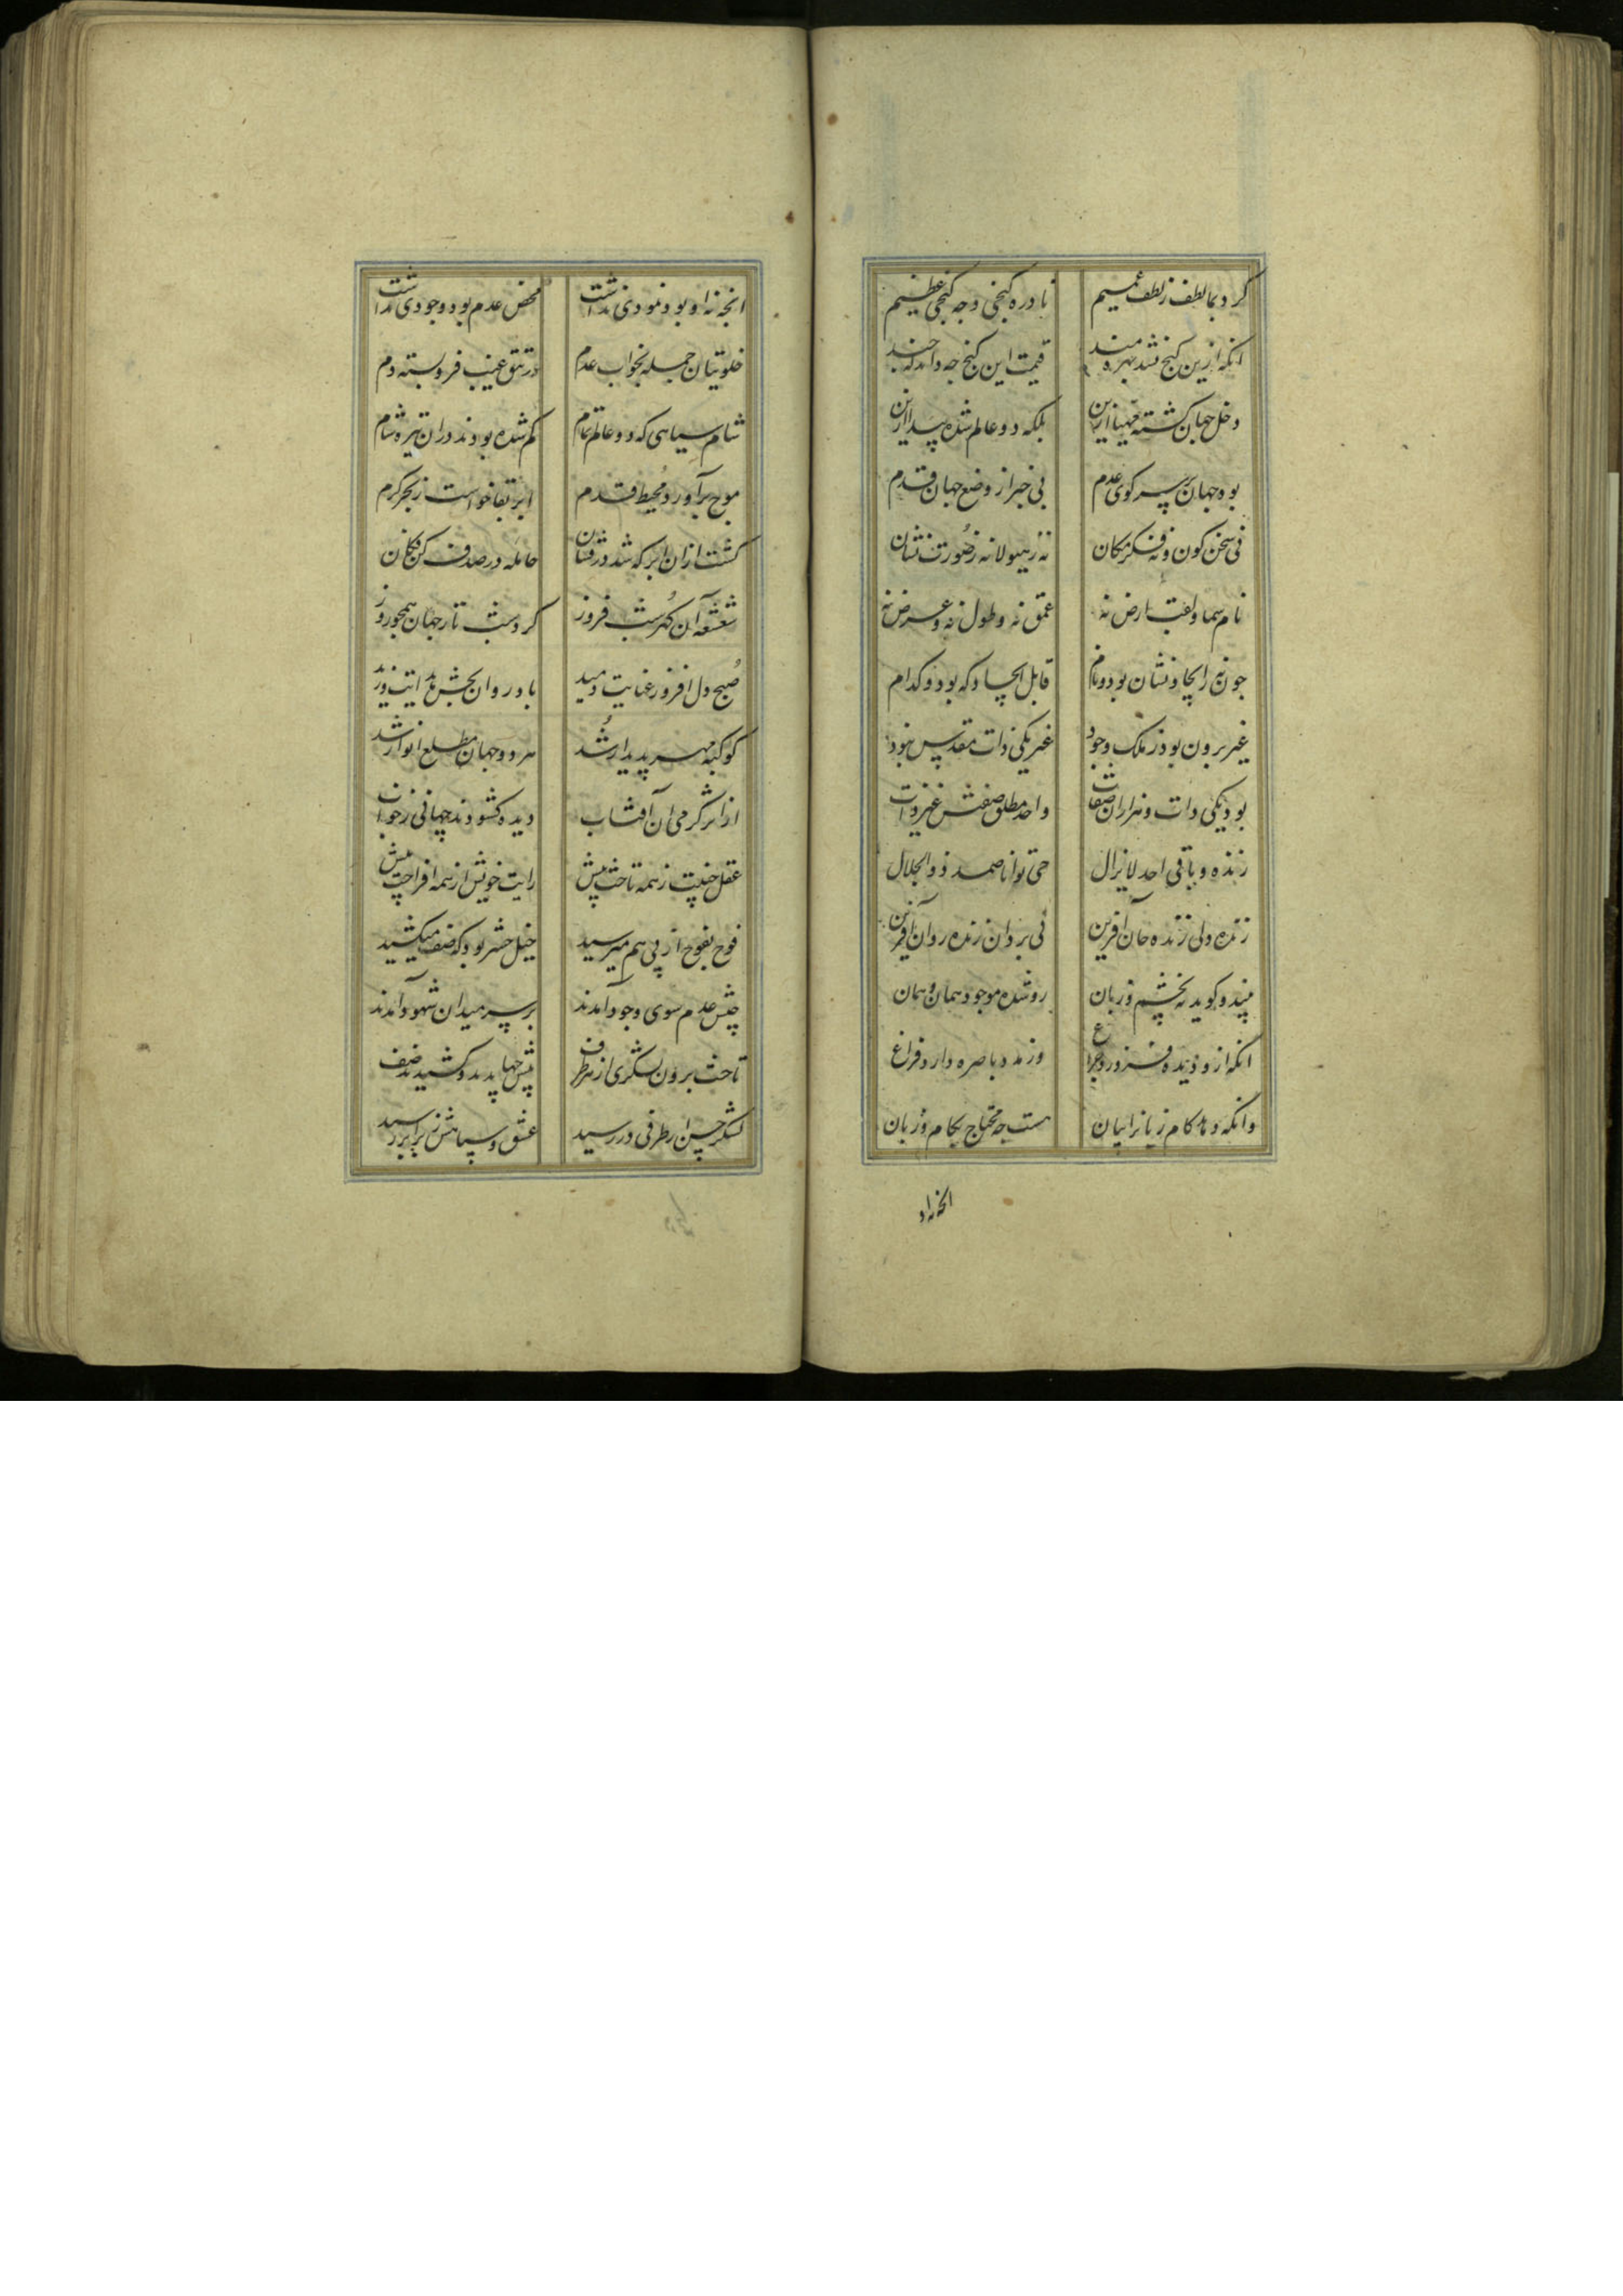 کرد بما لطف ز لطف عمیم نادره کنجی و چه کنجی عظیم
انکه ازین کنج نشد بهره مند قیمت این کنج چه داند که چند
دخل جهان کشته مهیا ازین بلکه دو عالم شده پیدا ازین
بود جهان بر سر کوی عدم بی خبر از وضع جهان قدم
نی سخن کون و نه فکر مکان نه ز هیولا نه ز صورت نشان
نام سما و لقب ارض نه عمق نه و طول نه و عرض نه
چون نه ز ایجاد نشان بود و نام قابل ایجاد که بود و کدام
غیر برون بود ز ملک وجود غیر یکی ذات مقدس نبود
بود یکی ذات و هزاران صفات واحد مطلق صفتش غیر ذات
زنده و باقی احد لایزال حی توانا صمد ذو الجلال
زنده ولی زنده جان آفرین نی بروان زنده روان آفرین
بیند و کوید نه بچشم و زبان زو شده موجود همان و همان
انکه ازو دیده فروزد چراغ وز مدد باصره دارد فراغ
وانکه دهد کام و زبان را بیان هست چه محتاج بکام و زبان
انچه نه او
انچه نه او بود نمودی نداشت محض عدم بود وجودی نداشت
خلوتیان جمله بخواب عدم در تتق غیب فرو بسته دم
شام سیاهی که دو عالم تمام کم شده بودند دران تیره شام
موج برآورد محیط قدم ابر بقا خواست ز بحر کرم
کشت ازان ابر که شد درفشان حامله در صدف کن فکان
شعشعه آن کهر شب فروز کرد شب تار جهان همچو روز
صبح دل افروز عنایت دمید باد روان بخش هدایت وزید
کوکبه مهر پدیدار شد هر دو جهان مطلع انوار شد
از اثر کرمی آن آفتاب دیده کشودند جهانی ز خواب
عقل خبیت ز همه تاخت پیش رایت خویش از همه افراخت پیش
فوج بفوج از پی هم میرسید خیل حشر بود که صف میکشید
جیش عدم سوی وجود آمدند بر سر میدان شهود آمدند
تاخت برون لشکری از هر طرف پیش جهاپدید و کشیدند صف
لشکر حسن از طرفی در رسید عشق و سپاهش ز برابر رسید